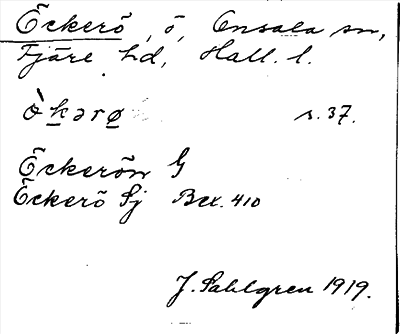 Öckerö, ö, Onsala sn,
Fjäre hd, Hall. l.
ò̀kərø s. 37.
Öckerön G
Öckerö Sj Bex. 410
J. Sahlgren 1919.